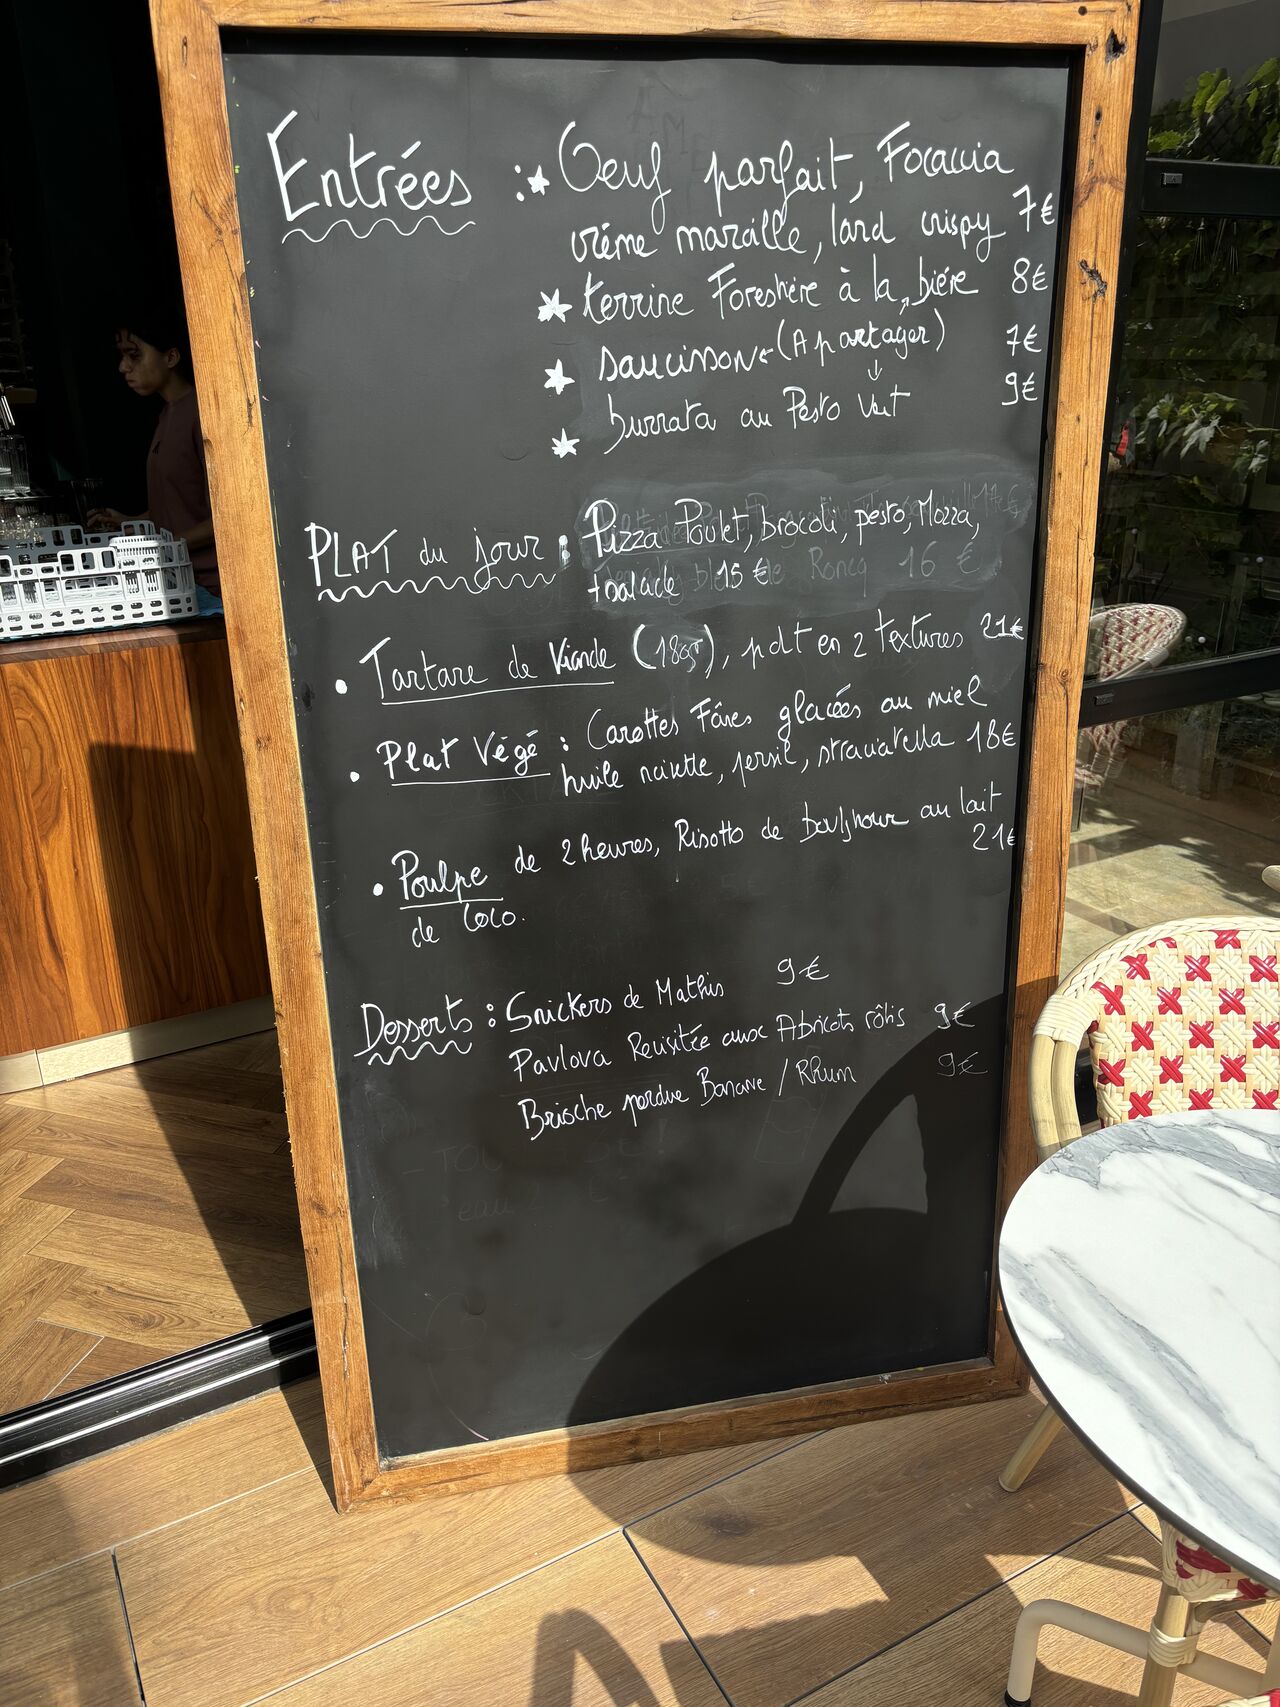 Entrées : Oeuf parfait, Focaccia
crème maroille, lard crispy 7€
terrine Forestière à la bière 8€
saucisson (A partager) 7€
burrata au Pesto Vert 9€
PLAT du jour : Pizza Poulet, brocoli, pesto, Mozza,
+ salade 15 €
Tartare de Viande (180gr), pdt en 2 textures 21€
Plat Végé : Carottes Fânes glacées au miel
huile noisette, persil, straciatella 18€
Poulpe de 2 heures, Risotto de boulghour au lait
21€
de Coco.
Desserts : Snickers de Mathis 9€
Pavlova Revisitée aux Abricots rôtis 9€
Brioche perdue Banane / Rhum 9€